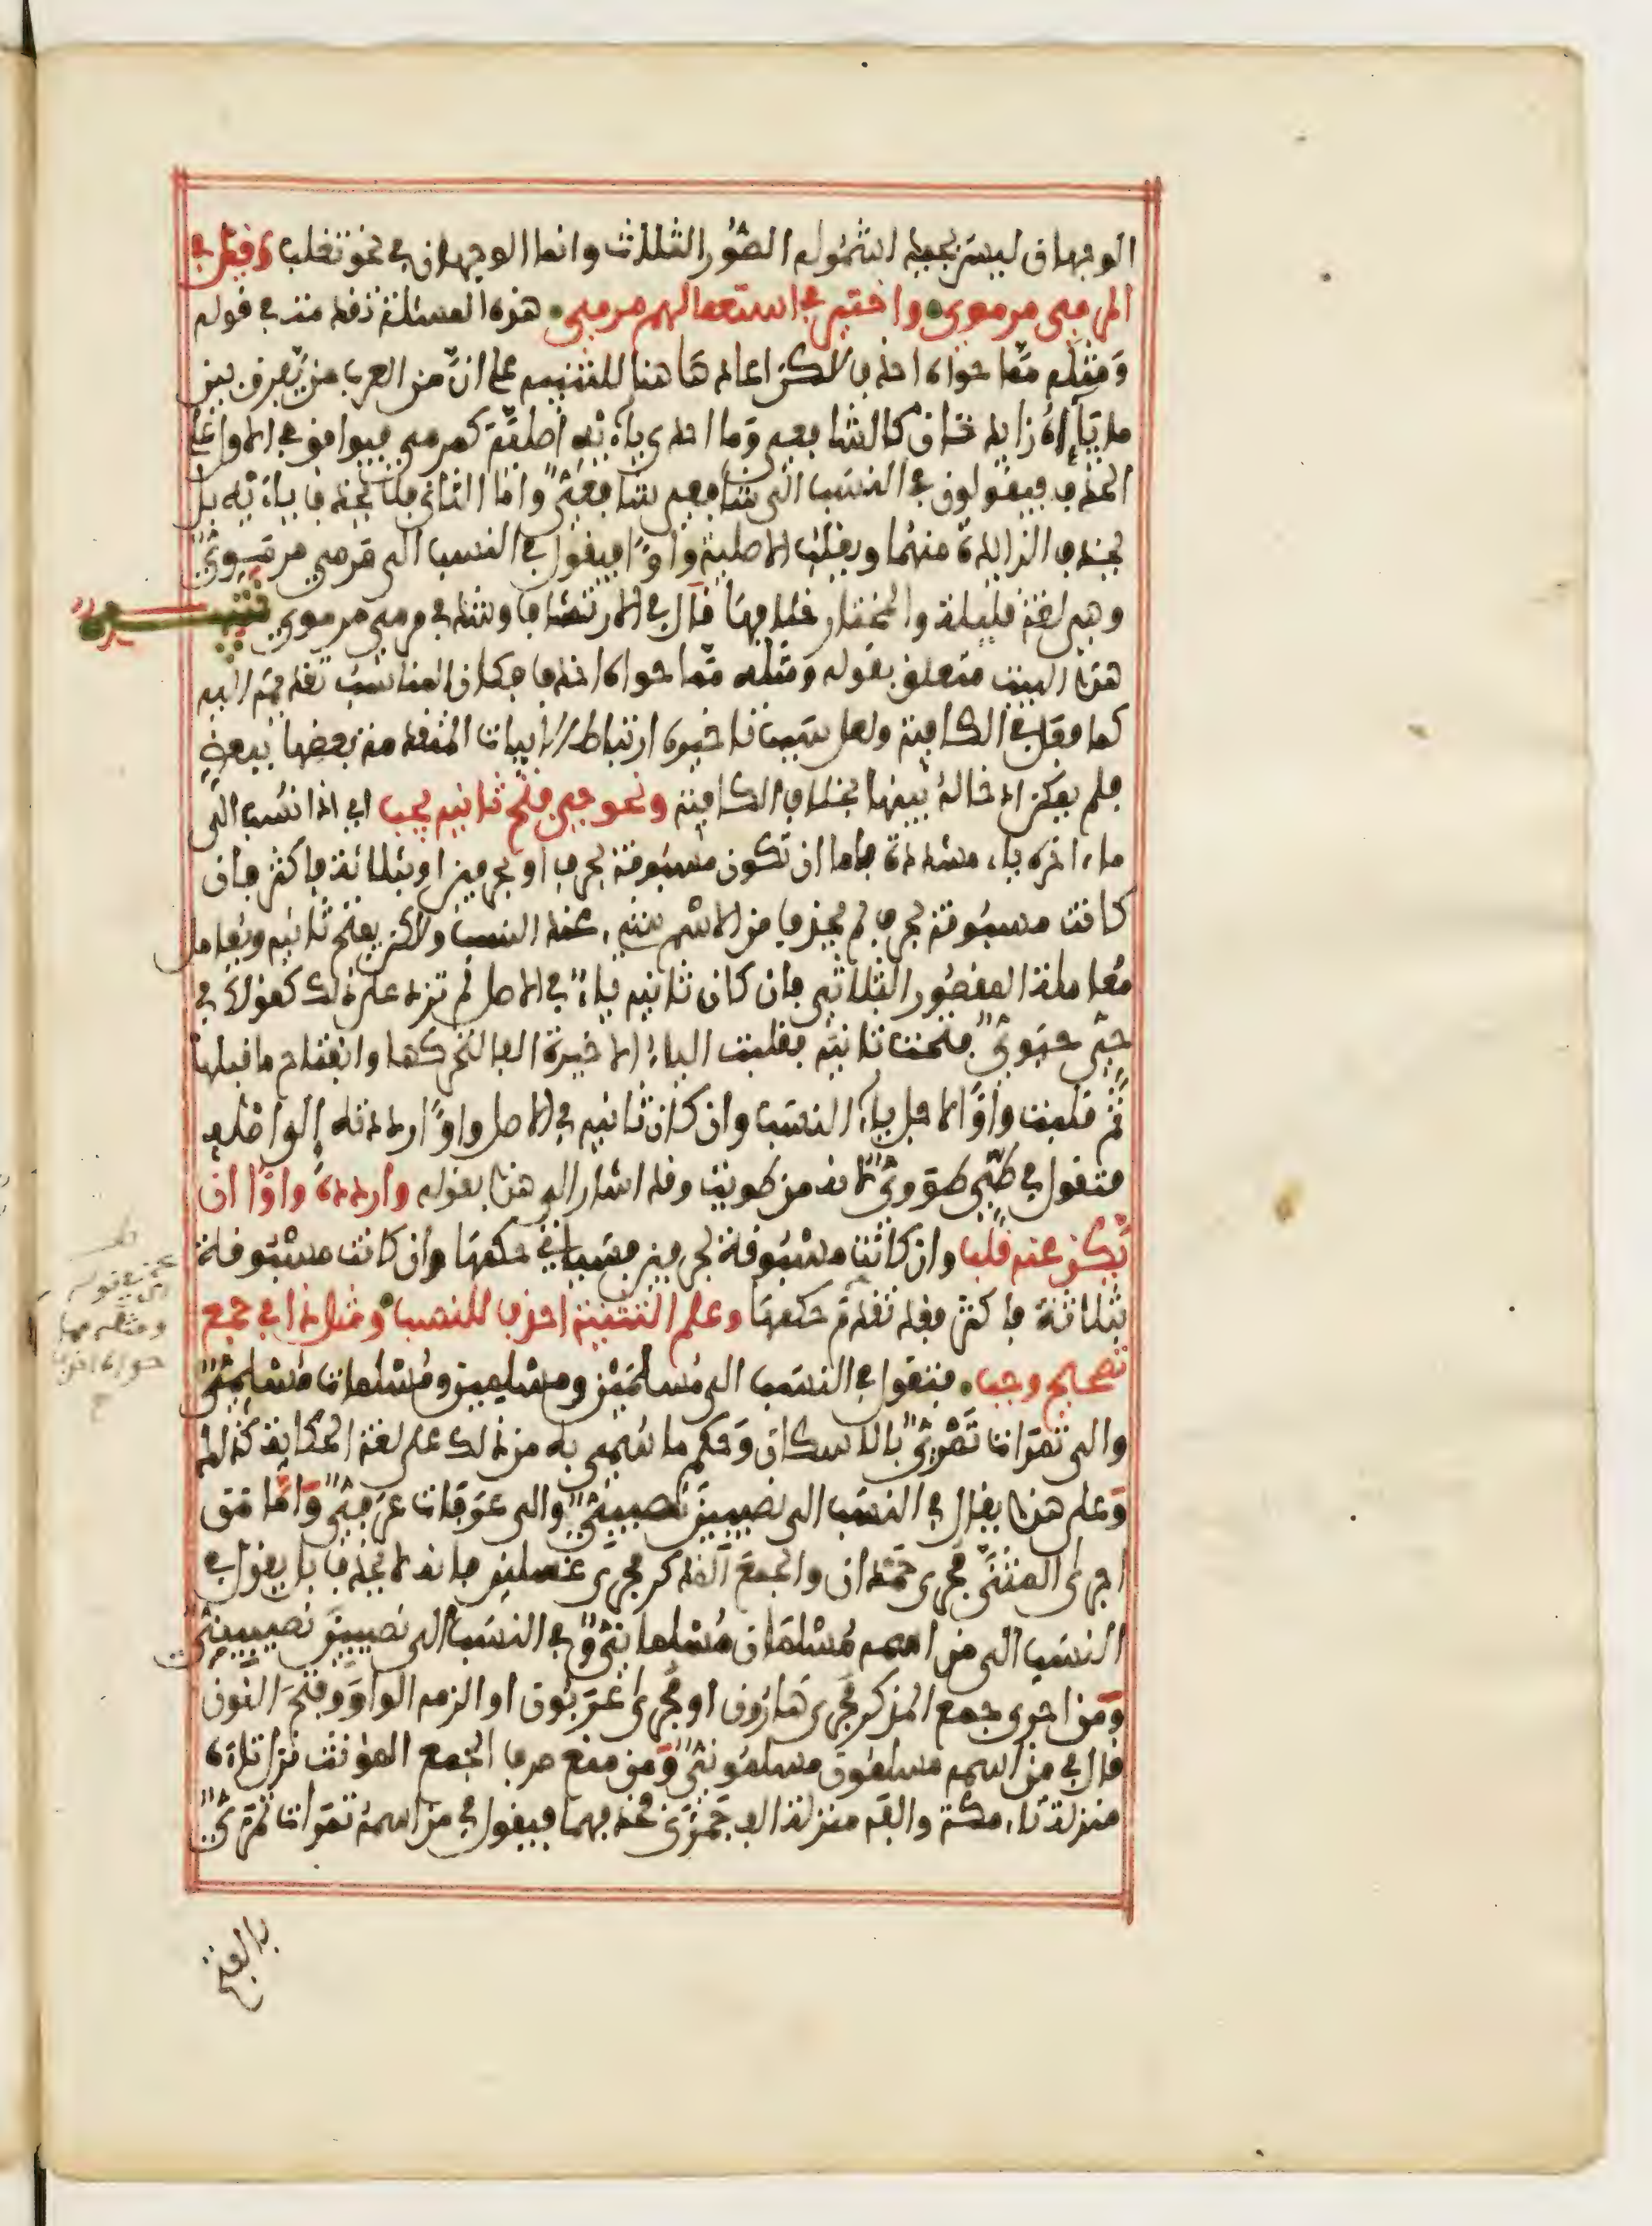 الوجهان ليس بجيد لشموله الصور الثلاث وانما الوجهان في نحو تغلب وقيل في
المرمي مرموي واختير في استعمالهم مرمي هذه المسئلة تقدمت في قوله
ومثله مما حواه احذف لاكن اعاده هاهنا للتنبيه على ان من العرب من يفرق بين
ما ياءاه زايدتان كالشافعي وما احدى ياءيه اصلية كمرمي فيوافق في الاول على
الحذف فيقولون في النسب الى شافعي شافعي واما الثاني فلا يحذف ياءيه بل
يحذف الزايدة منهما ويقلب الاصلية واوا فيقول في النسب الى مرمي مرموي
وهي لغة قليلة والمختار خلافها قال في الارتشاف وشذ في مرمي مرموي تنبيه
هذا البيت متعلق بقوله ومثله مما حواه احذف فكان المناسب تقديمه اليه
كما فعل في الكافية ولعل سبب تاخيره ارتباط الابيات المتقدمة بعضها ببعض
فلم يمكن ادخاله بينها بخلاف الكافية ونحو حي فتح ثانيه يجب اي اذا نسب الى
ما اخره ياء مشددة فاما ان تكون مسبوقة بحرف او بحرفين او بثلاثة فاكثر فان
كانت مسبوقة بحرف لم يحذف من الاسم شيء عند النسب ولاكن يفتح ثانيه ويعامل
معاملة المقصور الثلاثي فان كان ثانيه ياء في الاصل لم تزد على ذلك كقولك في
حي حيوي فتحت ثانيه فقلبت الياء الاخيرة الفا لتحركها وانفتاح ما قبلها
ثم قلبت واوا لاجل ياء النسب وان كان ثانيه في الاصل واوا رددته الى اصله
فتقول في طي طووي لانه من طويت وقد اشار الى هذا بقوله واردده واوا ان
يكن عنه قلب وان كانت مسبوقة بحرفين فسياتي حكمها وان كانت مسبوقة
بثلاثة فاكثر فقد تقدم حكمها وعلم التثنية احذف للنسب ومثل ذا في جمع
تصحيح وجب فتقول في النسب الى مسلمين ومسلمين ومسلمات مسلمي
والى تمرات تمري بالاسكان وحكم ما سمي به من ذلك على لغة الحكاية كذلك
وعلى هذا يقال في النسب الى نصيبين نصيبي والى عرفات عرفي واما من
اجرى المثنى مجرى حمدان والجمع المذكر مجرى غسلين فانه لا يحذف بل يقول في
النسب الى من اسمه مسلمان مسلماني وفي النسب الى نصيبين نصيبيني
ومن اجرى جمع المذكر مجرى هارون او مجرى عربون او الزمه الواو وفتح النون
قال في من اسمه مسلمون مسلموني ومن منع صرف الجمع المؤنث نزل تاءه
منزلة تاء مكة والفه منزلة الف جمزى فحذفهما فيقول في من اسمه تمرات تمري
بالفتح
قوله
ومثله مما
حواه احذف